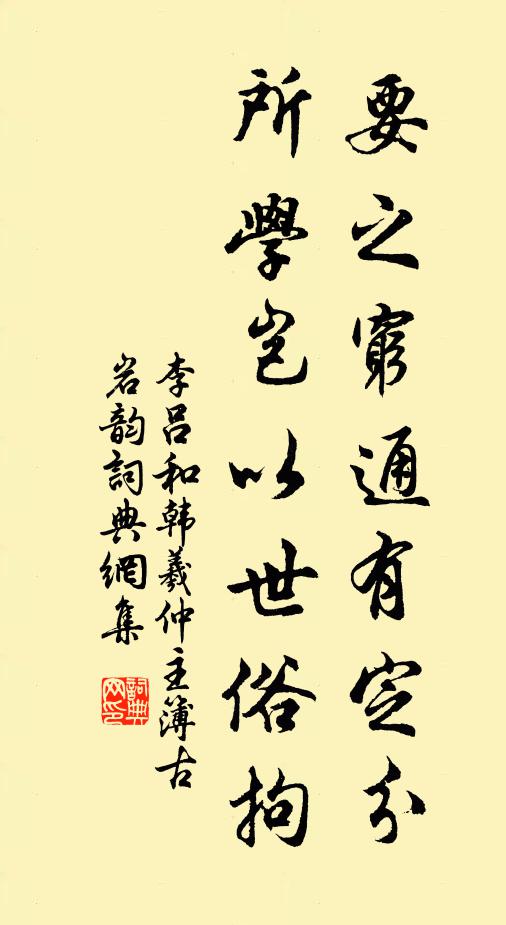 要之窮通有定分
所學豈以世俗拘
李呂和韩羲仲主簿古
岩韵詞典網集
詞典网印